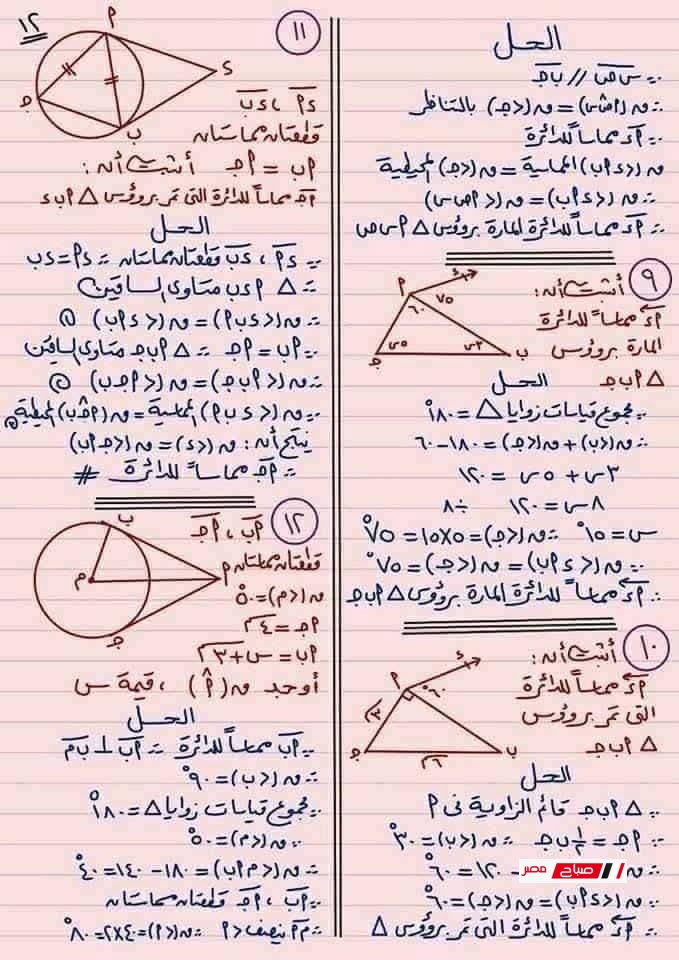 ١٢
الحل
∵ س ص // ب ج
∴ ق(أ ص س) = ق(< ج) بالتناظر
∵ أء مماساً للدائرة
ق(< ء أ ب) المماسية = ق(< ج) المحيطية
∴ ق(< ء أ ب) = ق(< أ ص س)
∴ أء مماساً للدائرة المارة برؤوس △ أ س ص
٩
أثبت أن:
أء مماساً للدائرة
المارة برؤوس
△ أ ب ج
أ
ء
٧٥
٦٠
٥س
٣س
ج
ب
الحل
∵ مجموع قياسات زوايا △ = ١٨٠°
∴ ق(< ب) + ق(< ج) = ١٨٠ - ٦٠
٣س + ٥س = ١٢٠
٨س = ١٢٠ ÷ ٨
س = ١٥° ∴ ق(< ج) = ١٥×٥ = ٧٥°
∵ ق(< ء أ ب) = ق(< ج) = ٧٥°
∴ أء مماساً للدائرة المارة برؤوس △ أ ب ج
١٠
أثبت أن:
أء مماساً للدائرة
التى تمر برؤوس
△ أ ب ج
أ
ء
٦٠°
٣
ج
٦
ب
الحل
∵ △ أ ب ج قائم الزاوية فى أ
∵ أ ج = ١/٢ ب ج ∴ ق(< ب) = ٣٠°
- ١٢٠ = ٦٠°
ق(< ء أ ب) = ق(< ج) = ٦٠°
∴ أء مماساً للدائرة التى تمر برؤوس △
١١
أ
ء
ج
ب
ء أ ، ء ب
قطعتان مماستان
أ ب = أ ج أثبت أن:
أ ج مماساً للدائرة التى تمر برؤوس △ أ ب ء
الحل
∵ ء أ ، ء ب قطعتان مماستان ∴ ء أ = ء ب
∴ △ أ ء ب متساوى الساقين
∴ ق(< ء ب أ) = ق(< ء أ ب) ①
∵ أ ب = أ ج ∴ △ أ ب ج متساوى الساقين
∴ ق(< أ ب ج) = ق(< أ ج ب) ②
∵ ق(< ء ب أ) المماسية = ق(أ ج ب) المحيطية
ينتج أن: ق(< ء) = ق(< ج أ ب)
∴ أ ج مماساً للدائرة #
١٢
ب
م
أ
ج
أ ب ، أ ج
قطعتان مماستان
ق(< م) = ٥٠°
أ ج = ٤
أ ب = س + ٣
أوجد ق(أ) ، قيمة س
الحل
∵ أ ب مماساً للدائرة ∴ أ ب ⊥ ب م
∴ ق(< ب) = ٩٠°
∵ مجموع قياسات زوايا △ = ١٨٠°
∵ ق(< م) = ٥٠°
∴ ق(< م أ ب) = ١٨٠ - ١٤٠ = ٤٠°
∵ أ ب ، أ ج قطعتان مماستان
∴ م أ ينصف < أ ∴ ق(< أ) = ٤٠×٢ = ٨٠°
صباح مصر